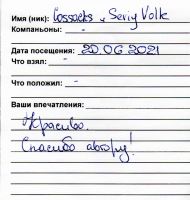 Имя (ник): Cossacks и Seriy Volk
Компаньоны: —
Дата посещения: 20.06 2021
Что взял: —
Что положил: —
Ваши впечатления:
Красиво.
Спасибо автору!